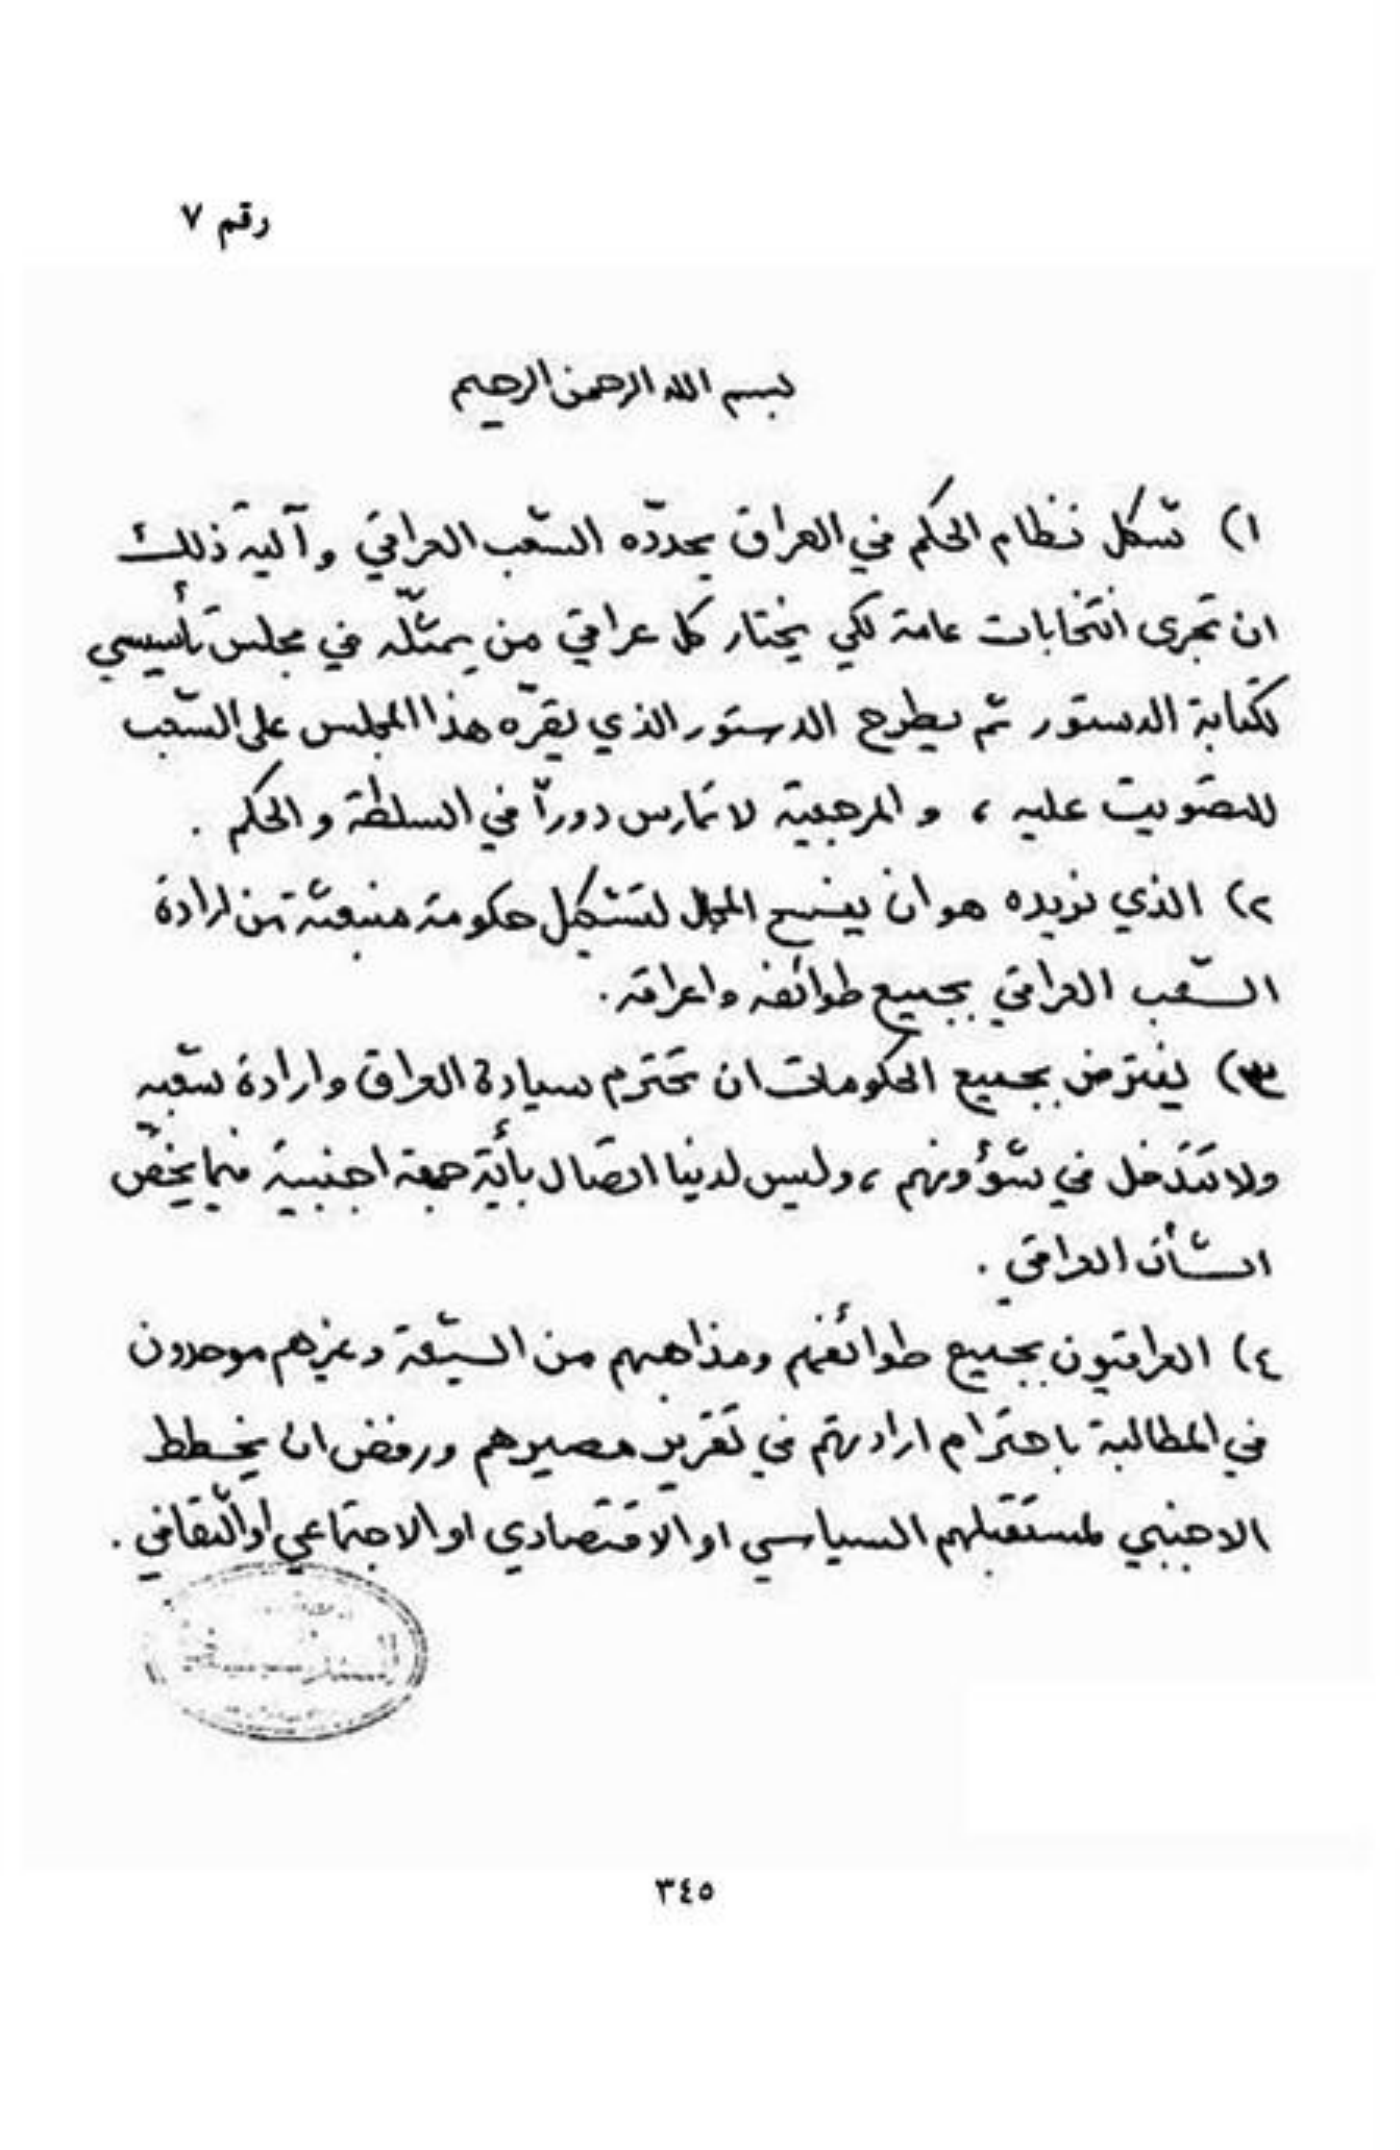 رقم ٧
بسم الله الرحمن الرحيم
١) شكل نظام الحكم في العراق يحدّده الشعب العراقي وآلية ذلك
ان تجرى انتخابات عامة لكي يختار كل عراقي من يمثّله في مجلس تأسيسي
لكتابة الدستور ثم يطرح الدستور الذي يقرّه هذا المجلس على الشعب
للتصويت عليه ، والمرجعية لا تمارس دوراً في السلطة والحكم .
٢) الذي نريده هو ان يفسح المجال لتشكيل حكومة منبعثة من ارادة
الشعب العراقي بجميع طوائفه واعراقه .
٣) يفترض بجميع الحكومات ان تحترم سيادة العراق وارادة شعبه
ولا تتدخل في شؤونهم ، وليس لدينا اتصال بأيّة جهة اجنبية فيما يخصّ
الشأن العراقي .
٤) العراقيون بجميع طوائفهم ومذاهبهم من الشيعة وغيرهم موحدون
في المطالبة باحترام ارادتهم في تقرير مصيرهم ورفض ان يخطط
الاجنبي لمستقبلهم السياسي او الاقتصادي او الاجتماعي او الثقافي .
٣٤٥